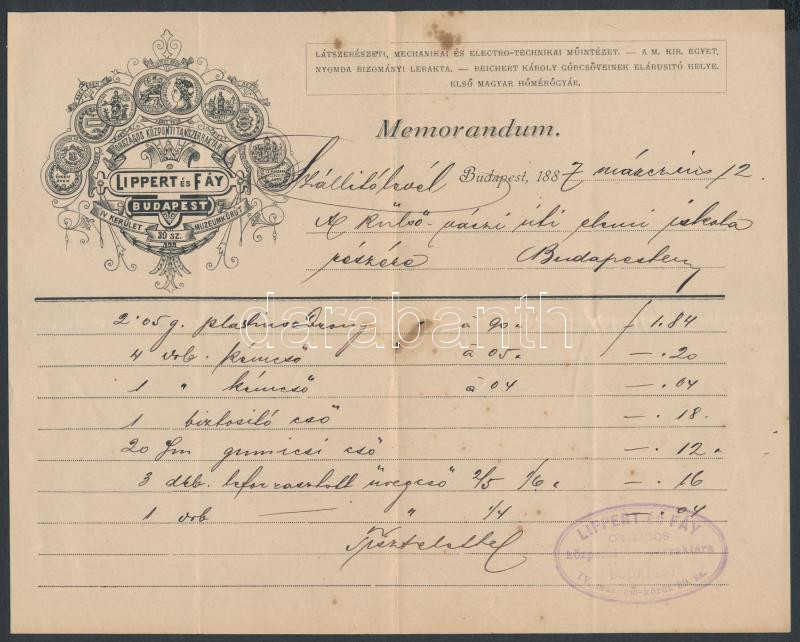 LÁTSZERÉSZETI, MECHANIKAI ÉS ELECTRO-TECHNIKAI MŰINTÉZET. — A M. KIR. EGYET.
NYOMDA BIZOMÁNYI LERAKTA. — REICHERT KÁROLY GÓRCSÖVEINEK ELÁRUSITÓ HELYE.
ELSŐ MAGYAR HŐMÉRŐGYÁR.
ORSZÁGOS KÖZPONTI TANSZERRAKTÁR
LIPPERT ÉS FÁY
BUDAPEST
IV. KERÜLET MUZEUMKÖRÚT
30 SZ.
Memorandum.
Szállitólevél Budapest, 1887 márczius 12.
A külső-váczi úti elemi iskola
részére Budapesten
2.05 g. à 90 f 1.84
4 drb. kémcső à 05 —.20
1 " kémcső à 04 —.04
1 biztositó cső —.18.
20 gummicső —.12
3 drb. beforrasztott üvegcső 2/5 1/6 —.16
1 drb — " 1/4 —.04
Tisztelettel
LIPPERT ÉS FÁY
ORSZÁGOS
központi tanszerraktára
BUDAPEST
IV. muzeum-körut 30. sz.
darabanth